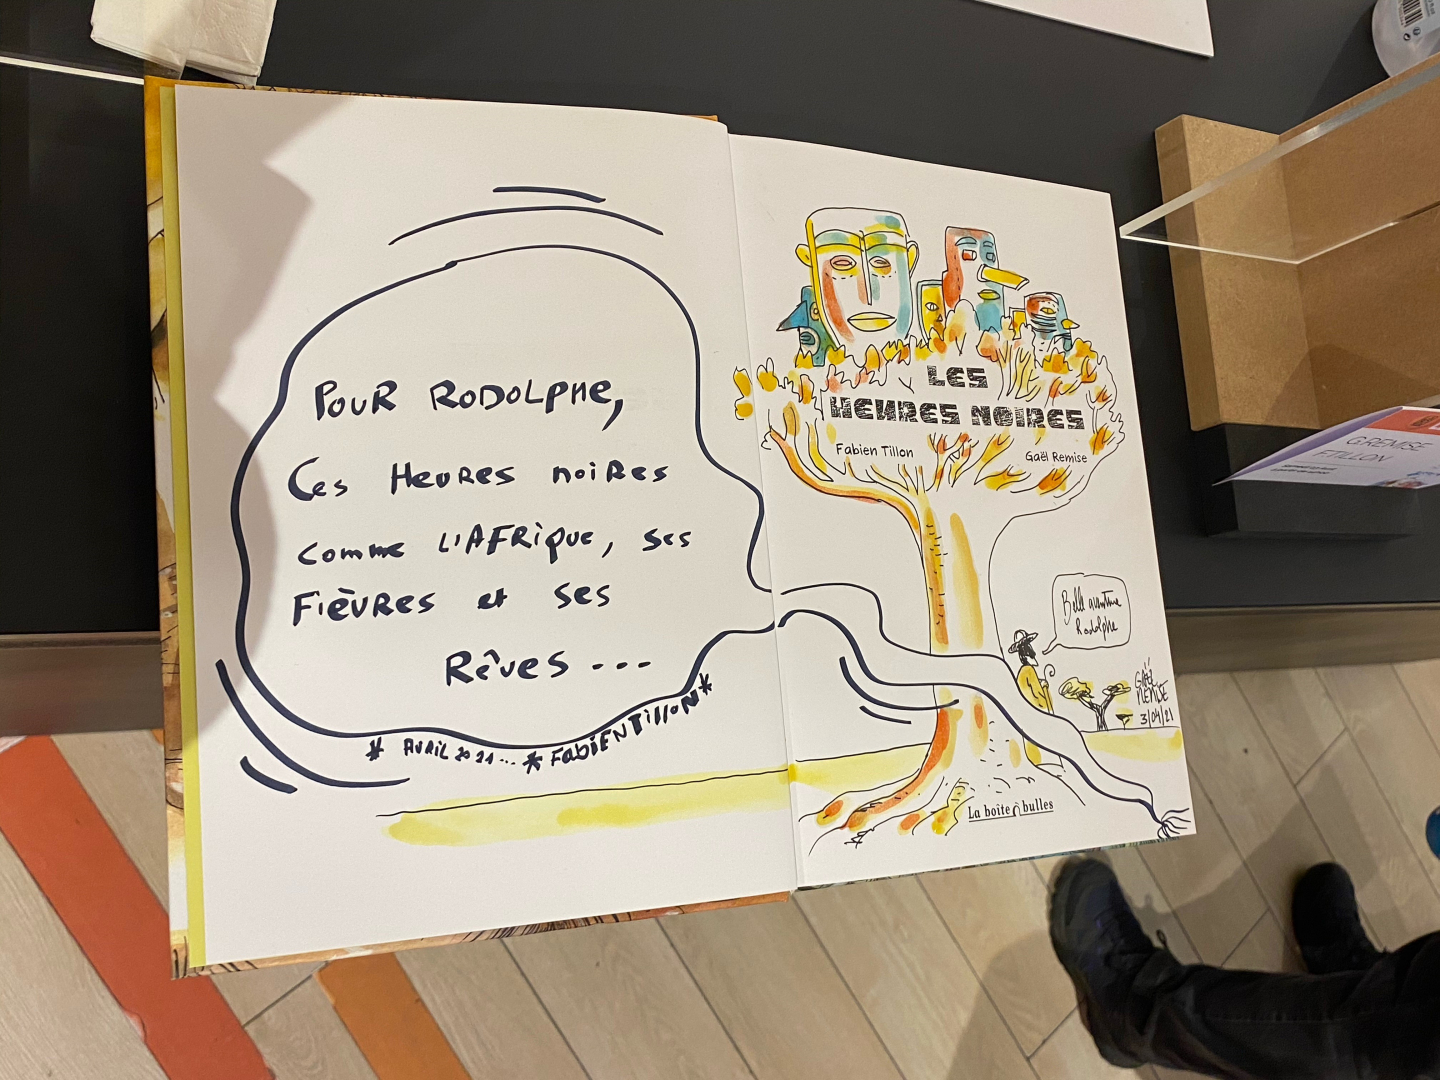 POUR RODOLPHE,
Ces Heures noires
comme L'AFRique, ses
Fièvres et ses
Rêves ...
* AVRIL 2021... * FABIEN Tillon *
LES
HEURES NOIRES
Fabien Tillon
Gaël Remise
Belle aventure
Rodolphe
GAËL
REMISE
3/04/21
La boîte à bulles
GREMISE
FTILLON